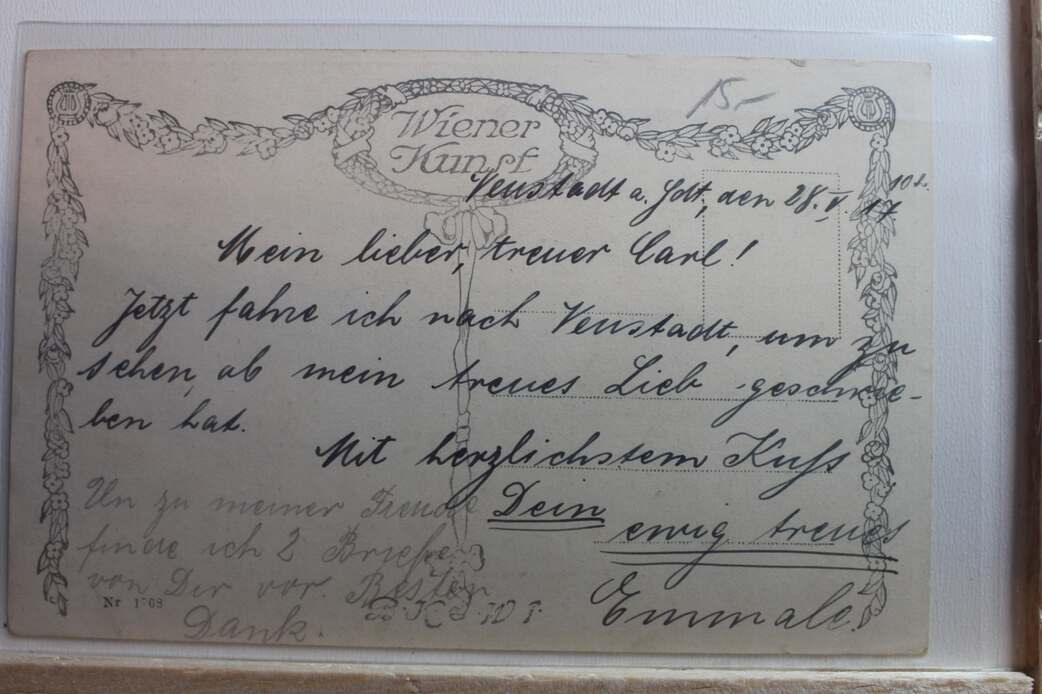 15.-
Wiener
Kunst
Neustadt a. Hdt, den 28. V. 17
Mein lieber, treuer Carl!
Jetzt fahre ich nach Neustadt, um zu
sehen, ob mein treues Lieb geschrie-
ben hat.
Mit herzlichstem Kuss
Dein
ewig treues
Emmale.
Un zu meiner Freude
finde ich 2 Briefe
von Dir vor. Besten
Dank.
Nr. 1768